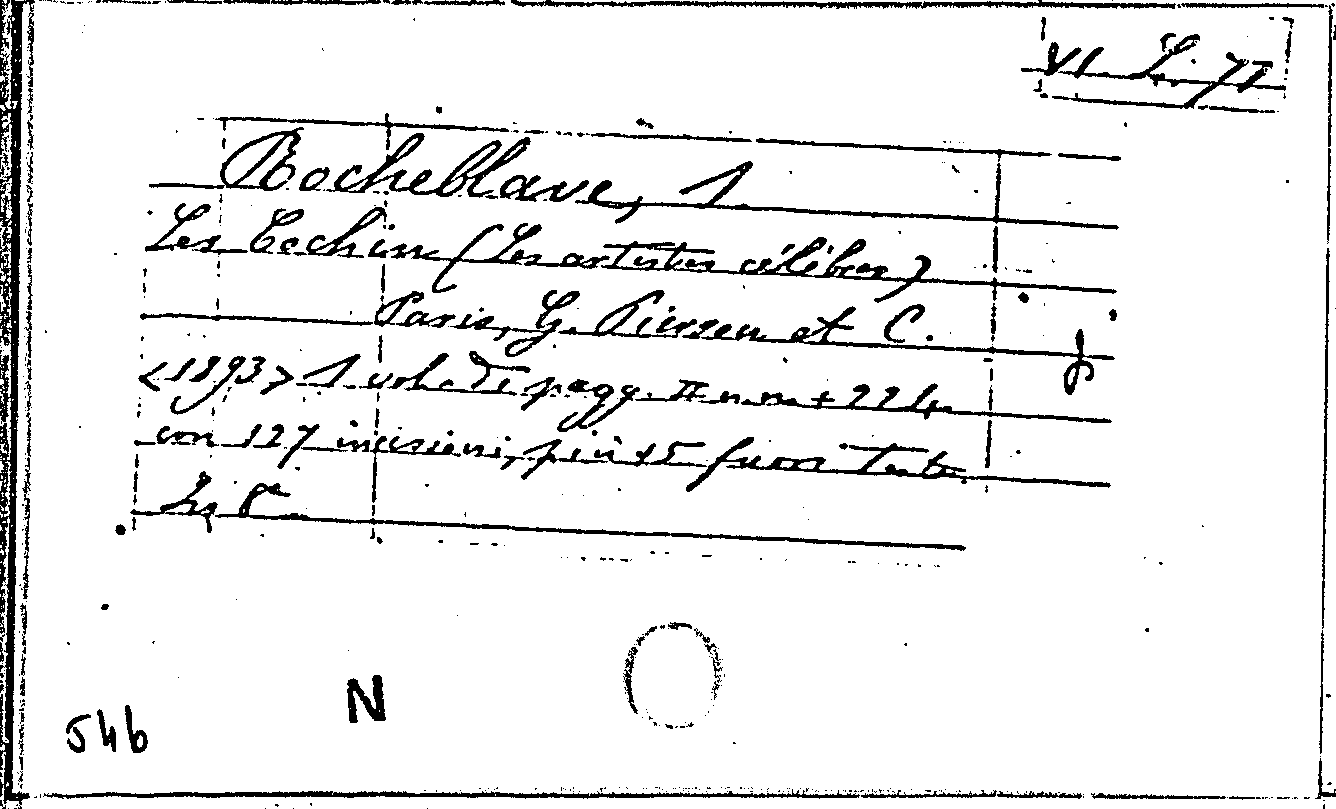 VI. L. 71
Rocheblave, S.
Les Cochin (Les artistes célèbres)
Paris, G. Pierson et C.
<1893> 1 vol. di pagg. II n.n. + 224
con 127 incisioni, più 15 fuori testo.
In 8°
N
546